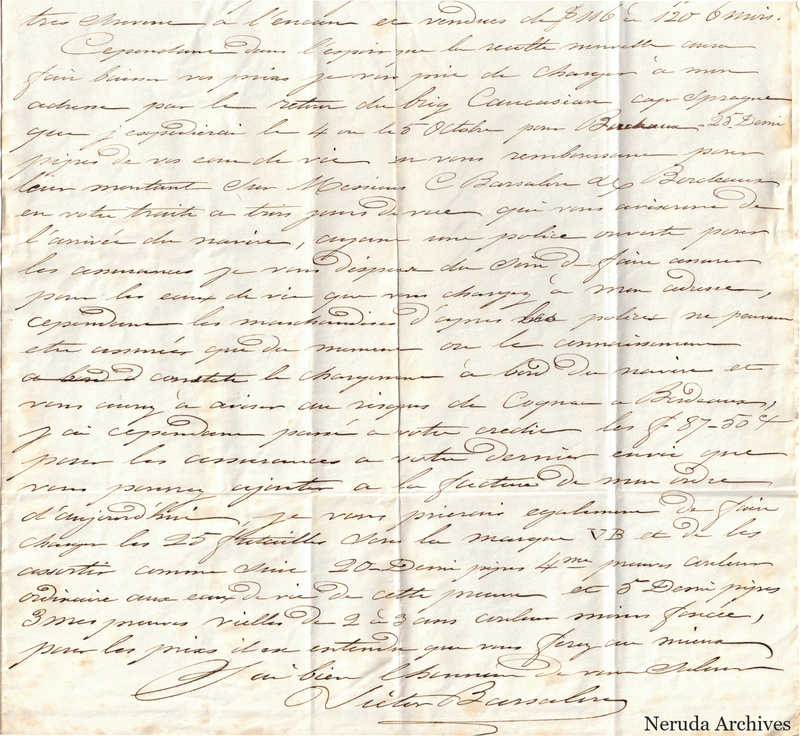 très souvent à l'encan et vendues de $116 à 120 6 mois.
Cependant dans l'espoir que la recolte nouvelle aura
fait baisser vos prix je vous prie de charger à mon
adresse par le retour du brig Caucasian cap Sprague
que j'expédierai le 4 ou le 5 Octobre pour Bordeaux, 25 Demi
pipes de vos eaux de vie en vous remboursant pour
leur montant sur Messieurs C Barsalou & Co Bordeaux
en votre traite a trois jours de vue qui vous aviseront de
l'arrivée du navire, ayant une police ouverte pour
les assurances je vous dispense du soin de faire assurer
pour les eaux de vie que vous chargez à mon adresse,
cependant les marchandises d'apres les polices ne peuvent
etre assurées que du moment ou le connaissement
constate le chargement à bord du navire et
vous aurez à aviser au risques de Cognac a Bordeaux,
j'ai cependant passé a votre credit les f 87-50 cts
pour les assurances a votre dernier envoi que
vous pourrez ajouter a la facture de mon ordre
d'aujourdhui, je vous prierais egalement de faire
charger les 25 futailles sous la marque VB et de les
assortir comme suit 20 Demi pipes 4me preuves couleur
ordinaire aux eaux de vie de cette preuve et 5 Demi pipes
3mes preuves vielles de 2 à 3 ans couleur moins foncée,
pour les prix il est entendu que vous ferez au mieux
J'ai bien l'honneur de vous saluer
Victor Barsalou
Neruda Archives